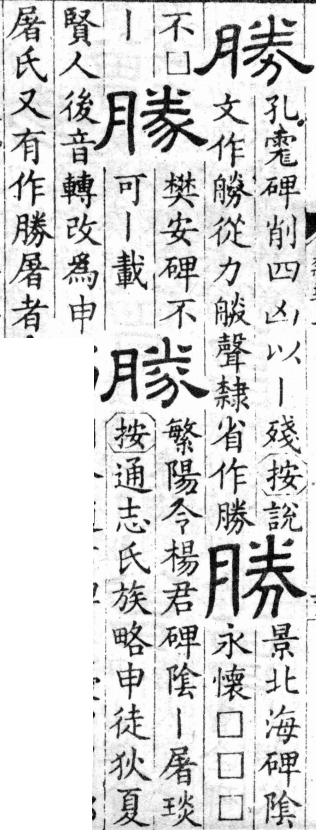 勝
孔碑削四凶以｜殘按說
文作勝從力朕聲隸省作勝
勝
景北海碑陰
永懷□□□
不□
｜
勝
樊安碑不
可｜載
勝
繁陽令楊君碑陰｜屠琰
按通志氏族略申徒狄夏
賢人後音轉改爲申
屠氏又有作勝屠者